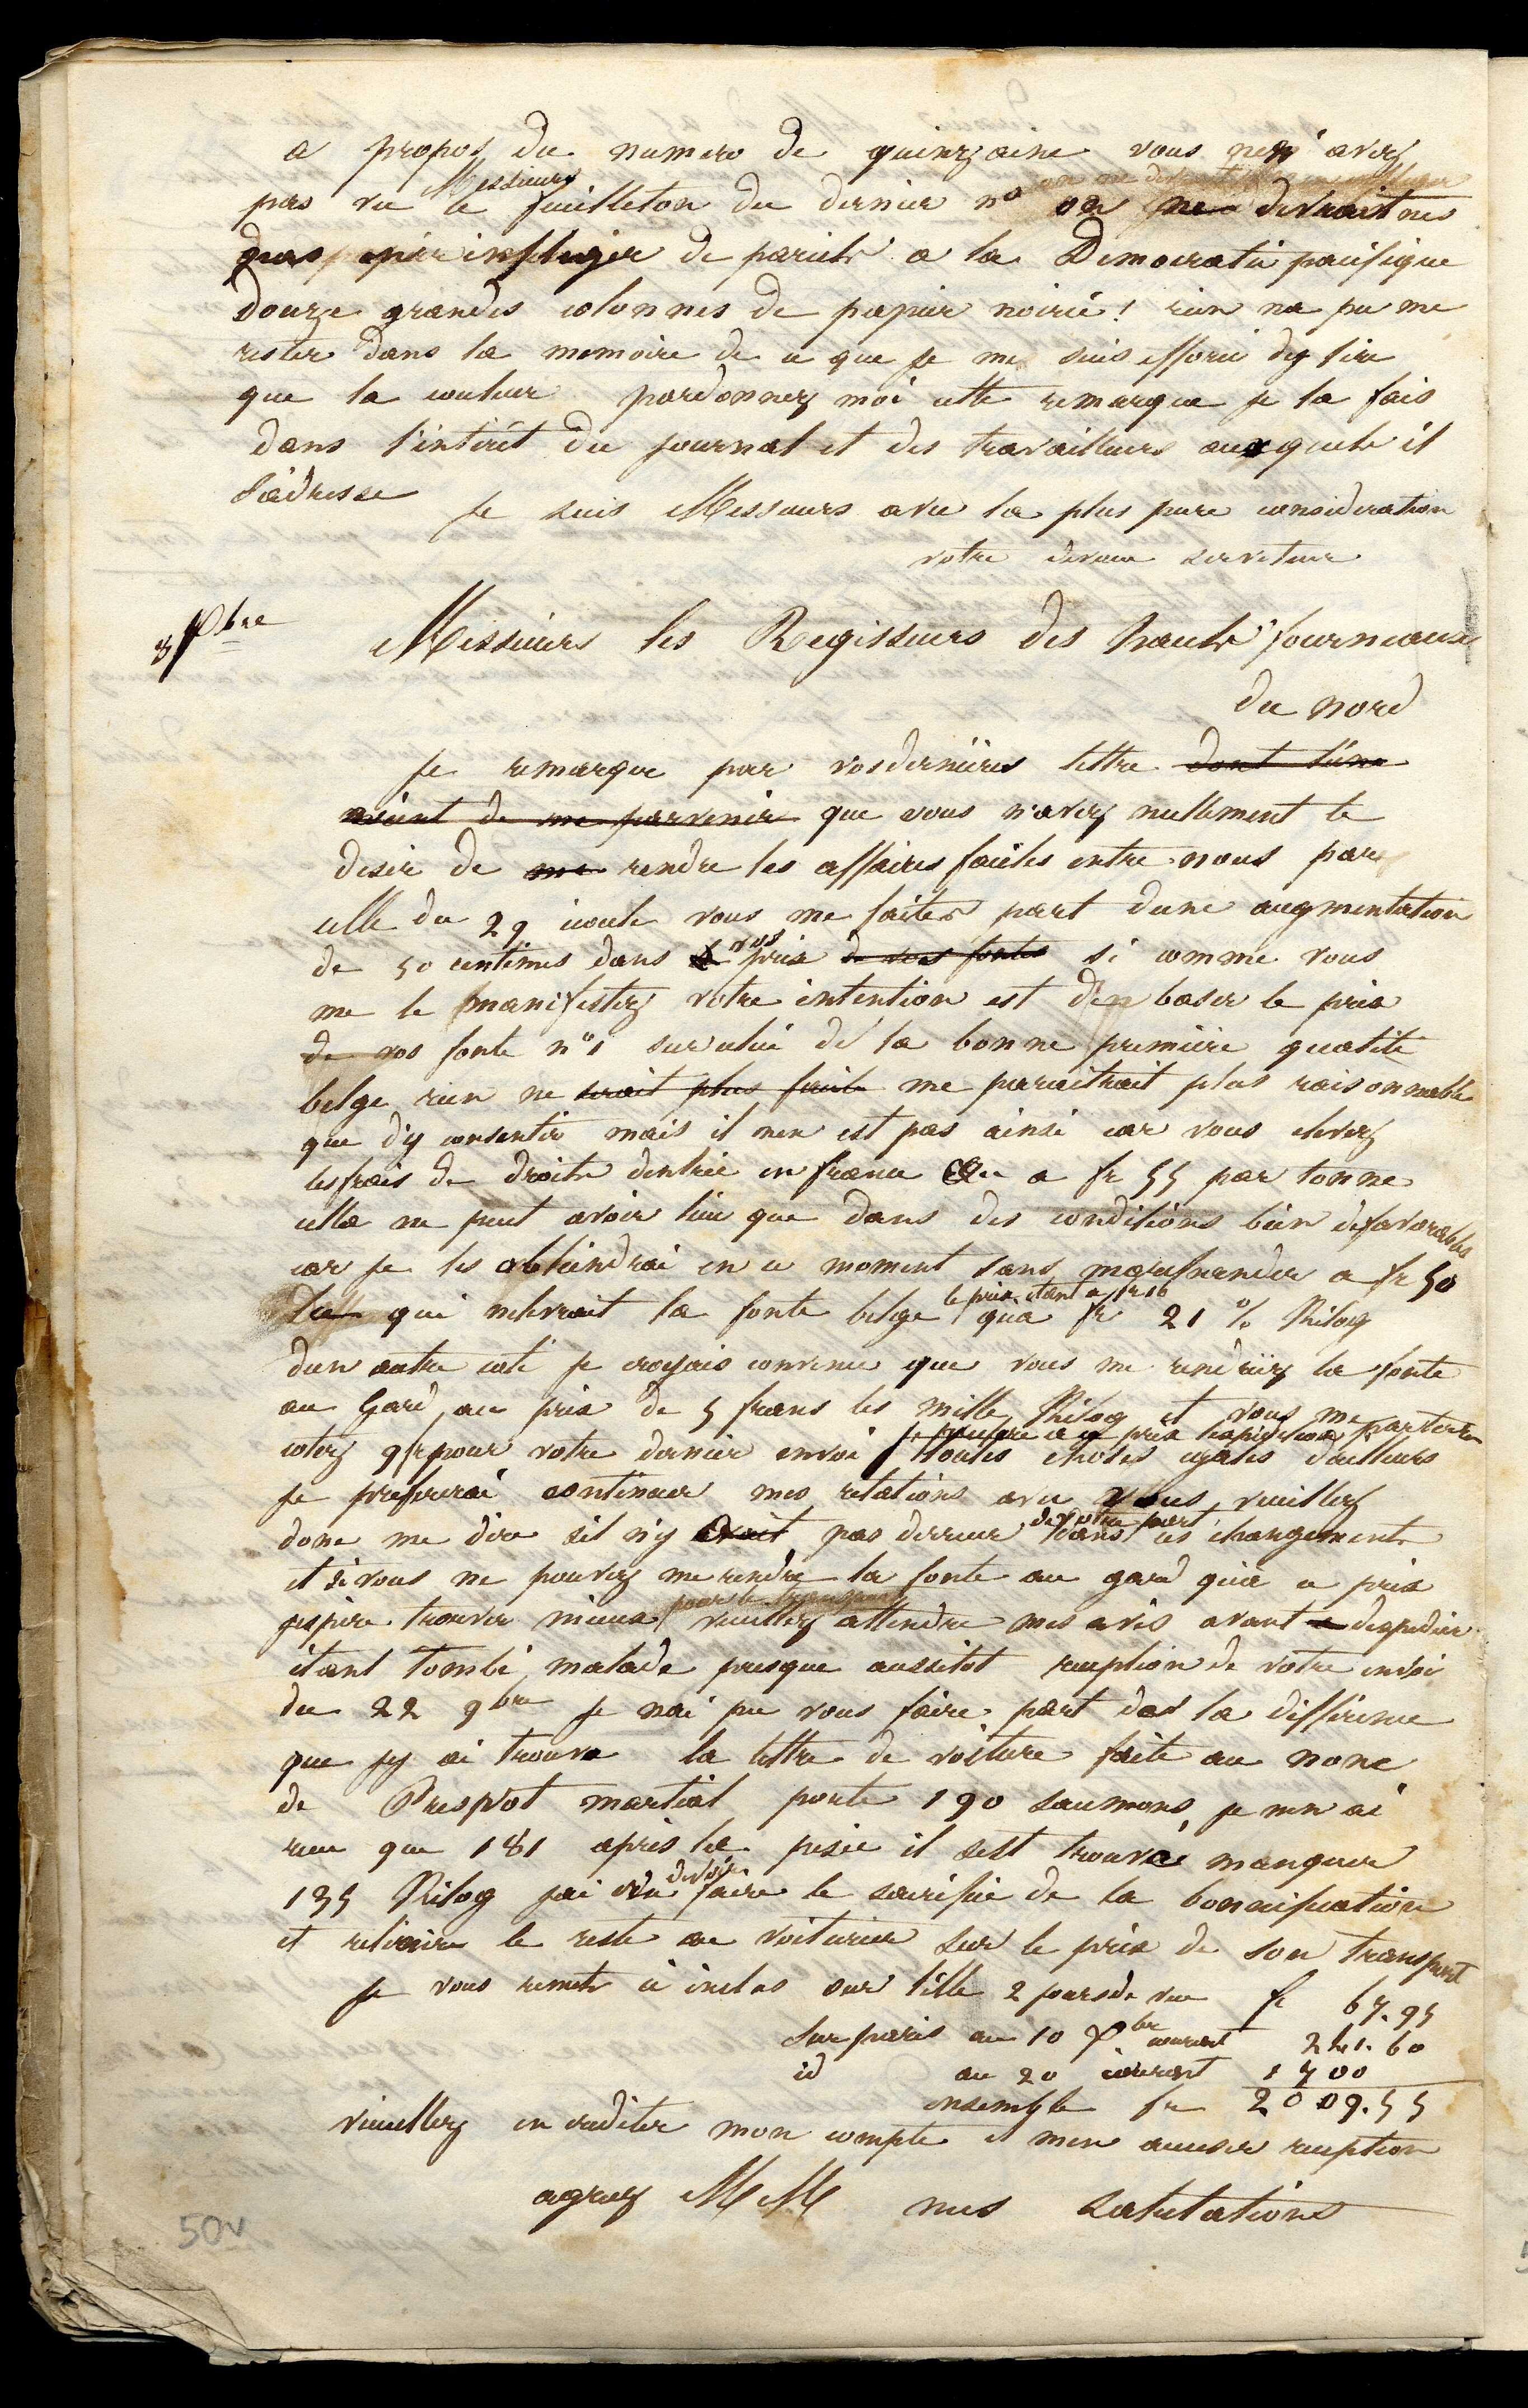 a propos du numero de quinzaine vous n'avez
Messieurs
pas vu ce feuilleton du dernier n° on ne devrait
infliger de pareils a la Democratie pacifique
Douze grandes colonnes de papier noirci ! rien na pu me
rester dans la memoire de ce que je me suis efforcé dy lire
que la couleur pardonnez moi cette remarque je la fais
dans l'interêt du journal et des travailleurs auxquels il
s'adresse
Je suis Messieurs avec la plus pure consideration
votre devoué serviteur
Messieurs les Regisseurs des hauts fourneaux
du nord
Je remarque par vos dernières lettre dont l'une
vient de me parvenir que vous n'avez nullement le
desir de me rendre les affaires faciles entre nous par
celle du 29 écoulé vous me faites part dune augmentation
de 50 centimes dans vos prix de vos fontes si comme vous
me le manifestez votre intention est d'en baser le prix
de vos fonte n°1 sur celui de la bonne première qualité
belge rien ne serait plus facile me paraitrait plus raisonnable
que d'y consentir mais il nen est pas ainsi car vous elevez
les frais de droits dentrée en france a fr 55 par tonne
cella ne peut avoir lieu que dans des conditions bien defavorables
car je les obtiendrai en ce moment sans marchander a fr 50
le prix etant a fr 16
qui neleverait la fonte belge qua fr 21 % Kilog
dun autre coté je croyais convenu que vous me rendriez la fonte
au Gard, au prix de 5 francs les mille Kilog et vous me
cotez 9 fr pour votre dernier envoi toutes choses egales dailleurs
je prefererai continuer mes relations avec vous, veuillez
de votre part
donc me dire sil n'y avait pas derreur dans ces changements
et si vous ne pouvez me rendre la fonte au gard qu'a ce prix
pour le transport
jespère trouver mieux veuillez attendre mes avis avant dexpedier
étant tombé malade presque aussitot reception de votre envoi
du 22 9bre je nai pu vous faire part de la difference
que jy ai trouvé la lettre de voiture faite au nom
de Prespot martial porte 190 saumons je nen ai
recu que 181 apres la pesée il sest trouvé manquer
135 Kilog jai cru devoir faire le sacrifice de la bonification
et retenire le reste au voiturier sur le prix de son transport
Je vous remets ci inclus sur lille 2 jours de vue fr 67.95
Sur paris au 10 Xbre courant 241.60
id au 20 courant 1700
ensemble fr 2009.55
veuillez en crediter mon compte et men accuser reception
agreez MM mes salutations
50v